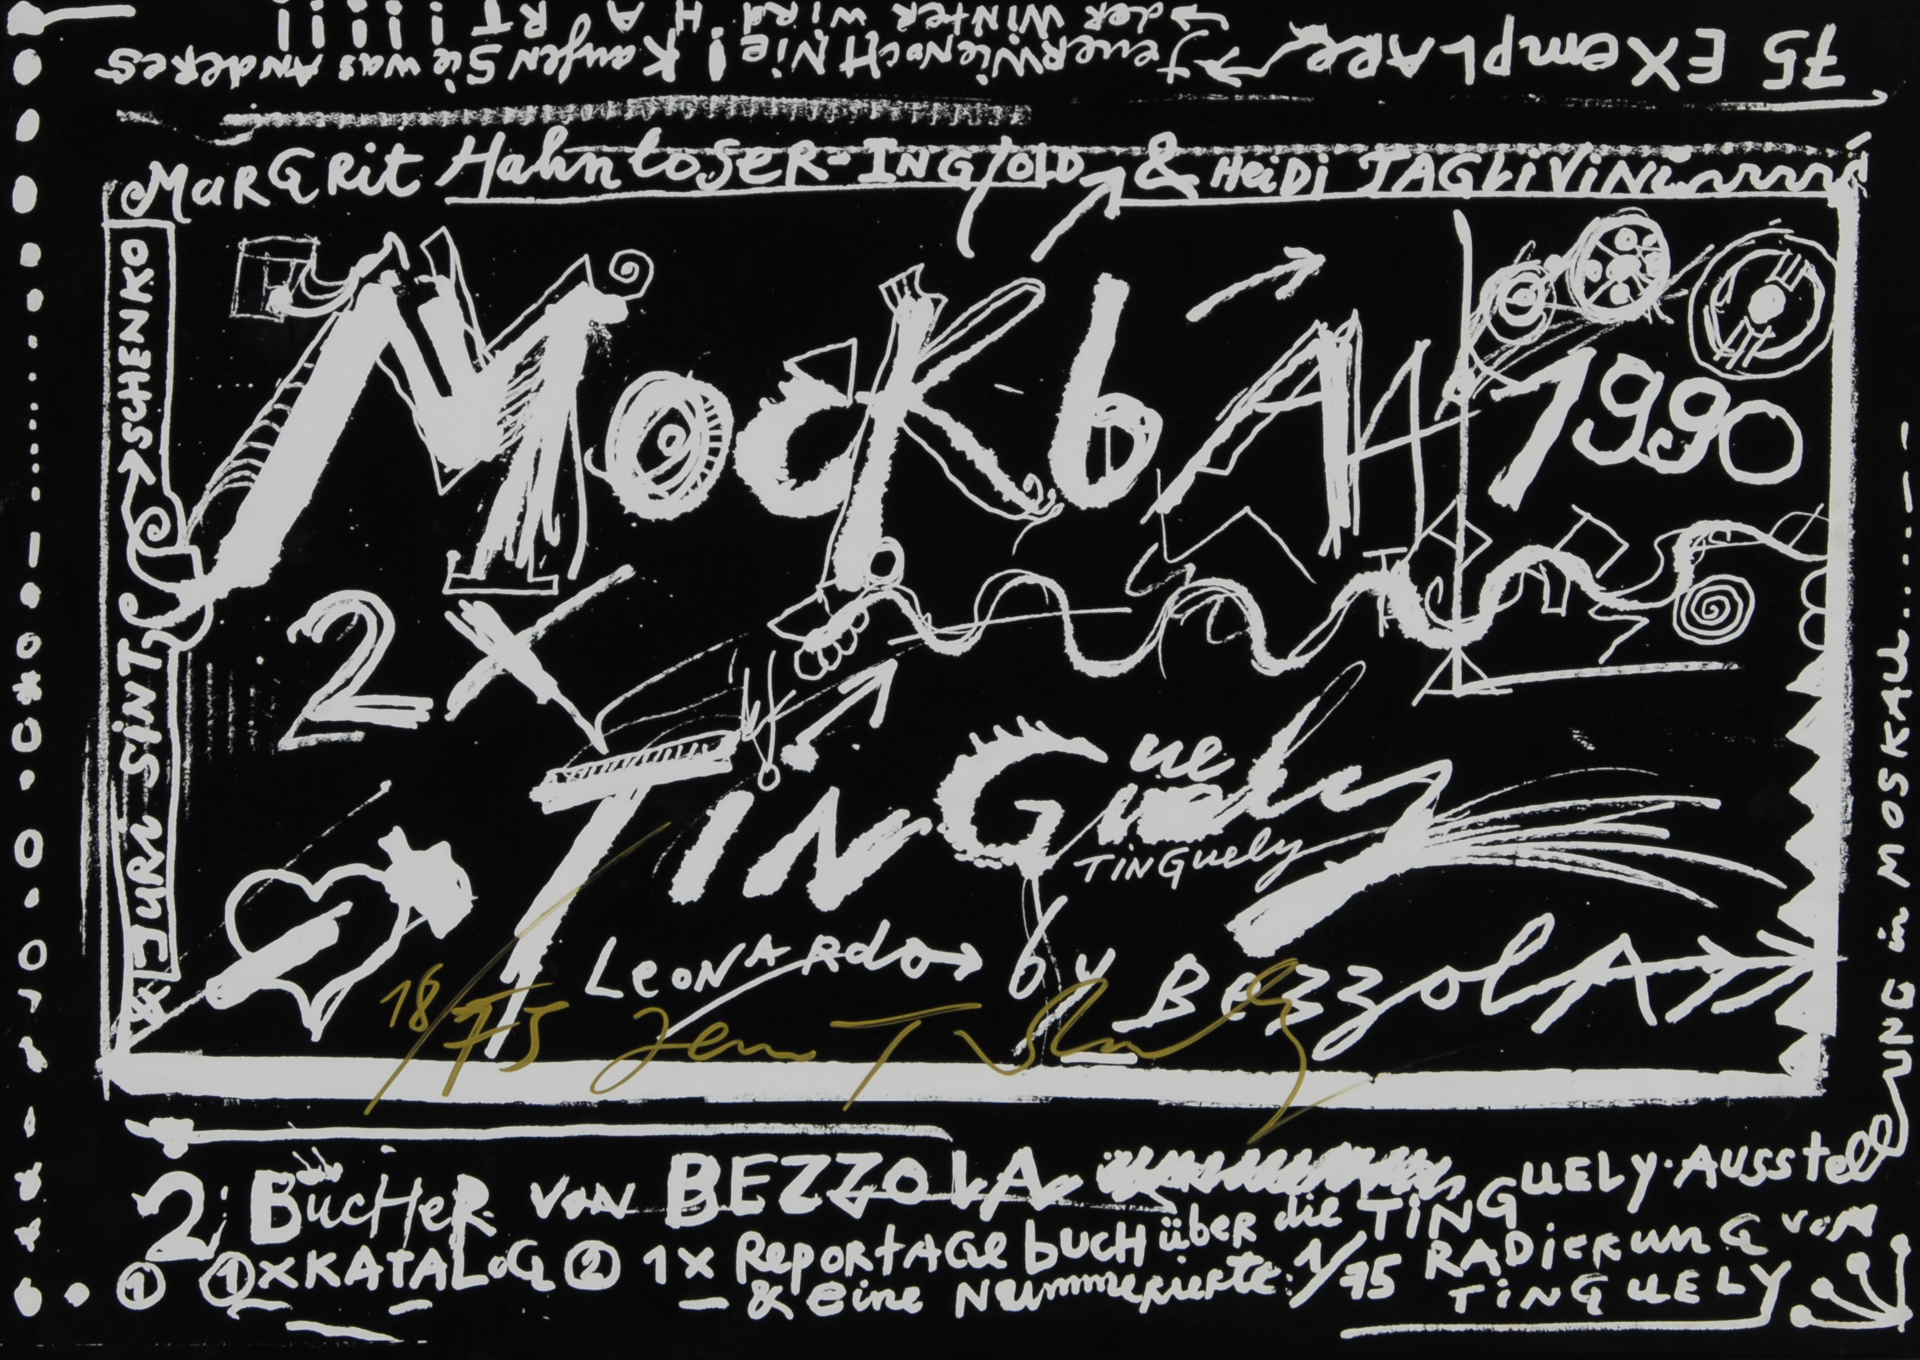 der WINTER wird H A R T ! ! ! ! !
75 EXEMPLARE → teuer wie noch nie! Kaufen Sie was Anderes
MARGRit Hahnloser-INGOLD & HeiDi TAGLiViNi
& JURI SiNT → SCHENKO
MOCKBA 1990
2X
TiNGuely
uely
TiNGuely
LEONARDO → by BEZZOLA
18/75 Jean Tinguely
2 BÜCHER VON BEZZOLA
① ① X KATALOG ② 1X REPORTAGE buch über die TiNGUELY-AUSSTELLUNG in MOSKAU.....
& eine Nummerierte: 1/75 RADIERUNG VOM TiNGUELY